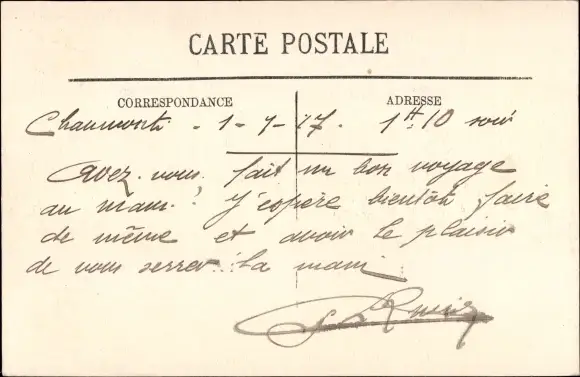 CARTE POSTALE
CORRESPONDANCE ADRESSE
Chaumont. - 1-7-17. 1H.10 soir
Avez-vous fait un bon voyage
au mans? J'espère bientôt faire
de même et avoir le plaisir
de vous serrer la main